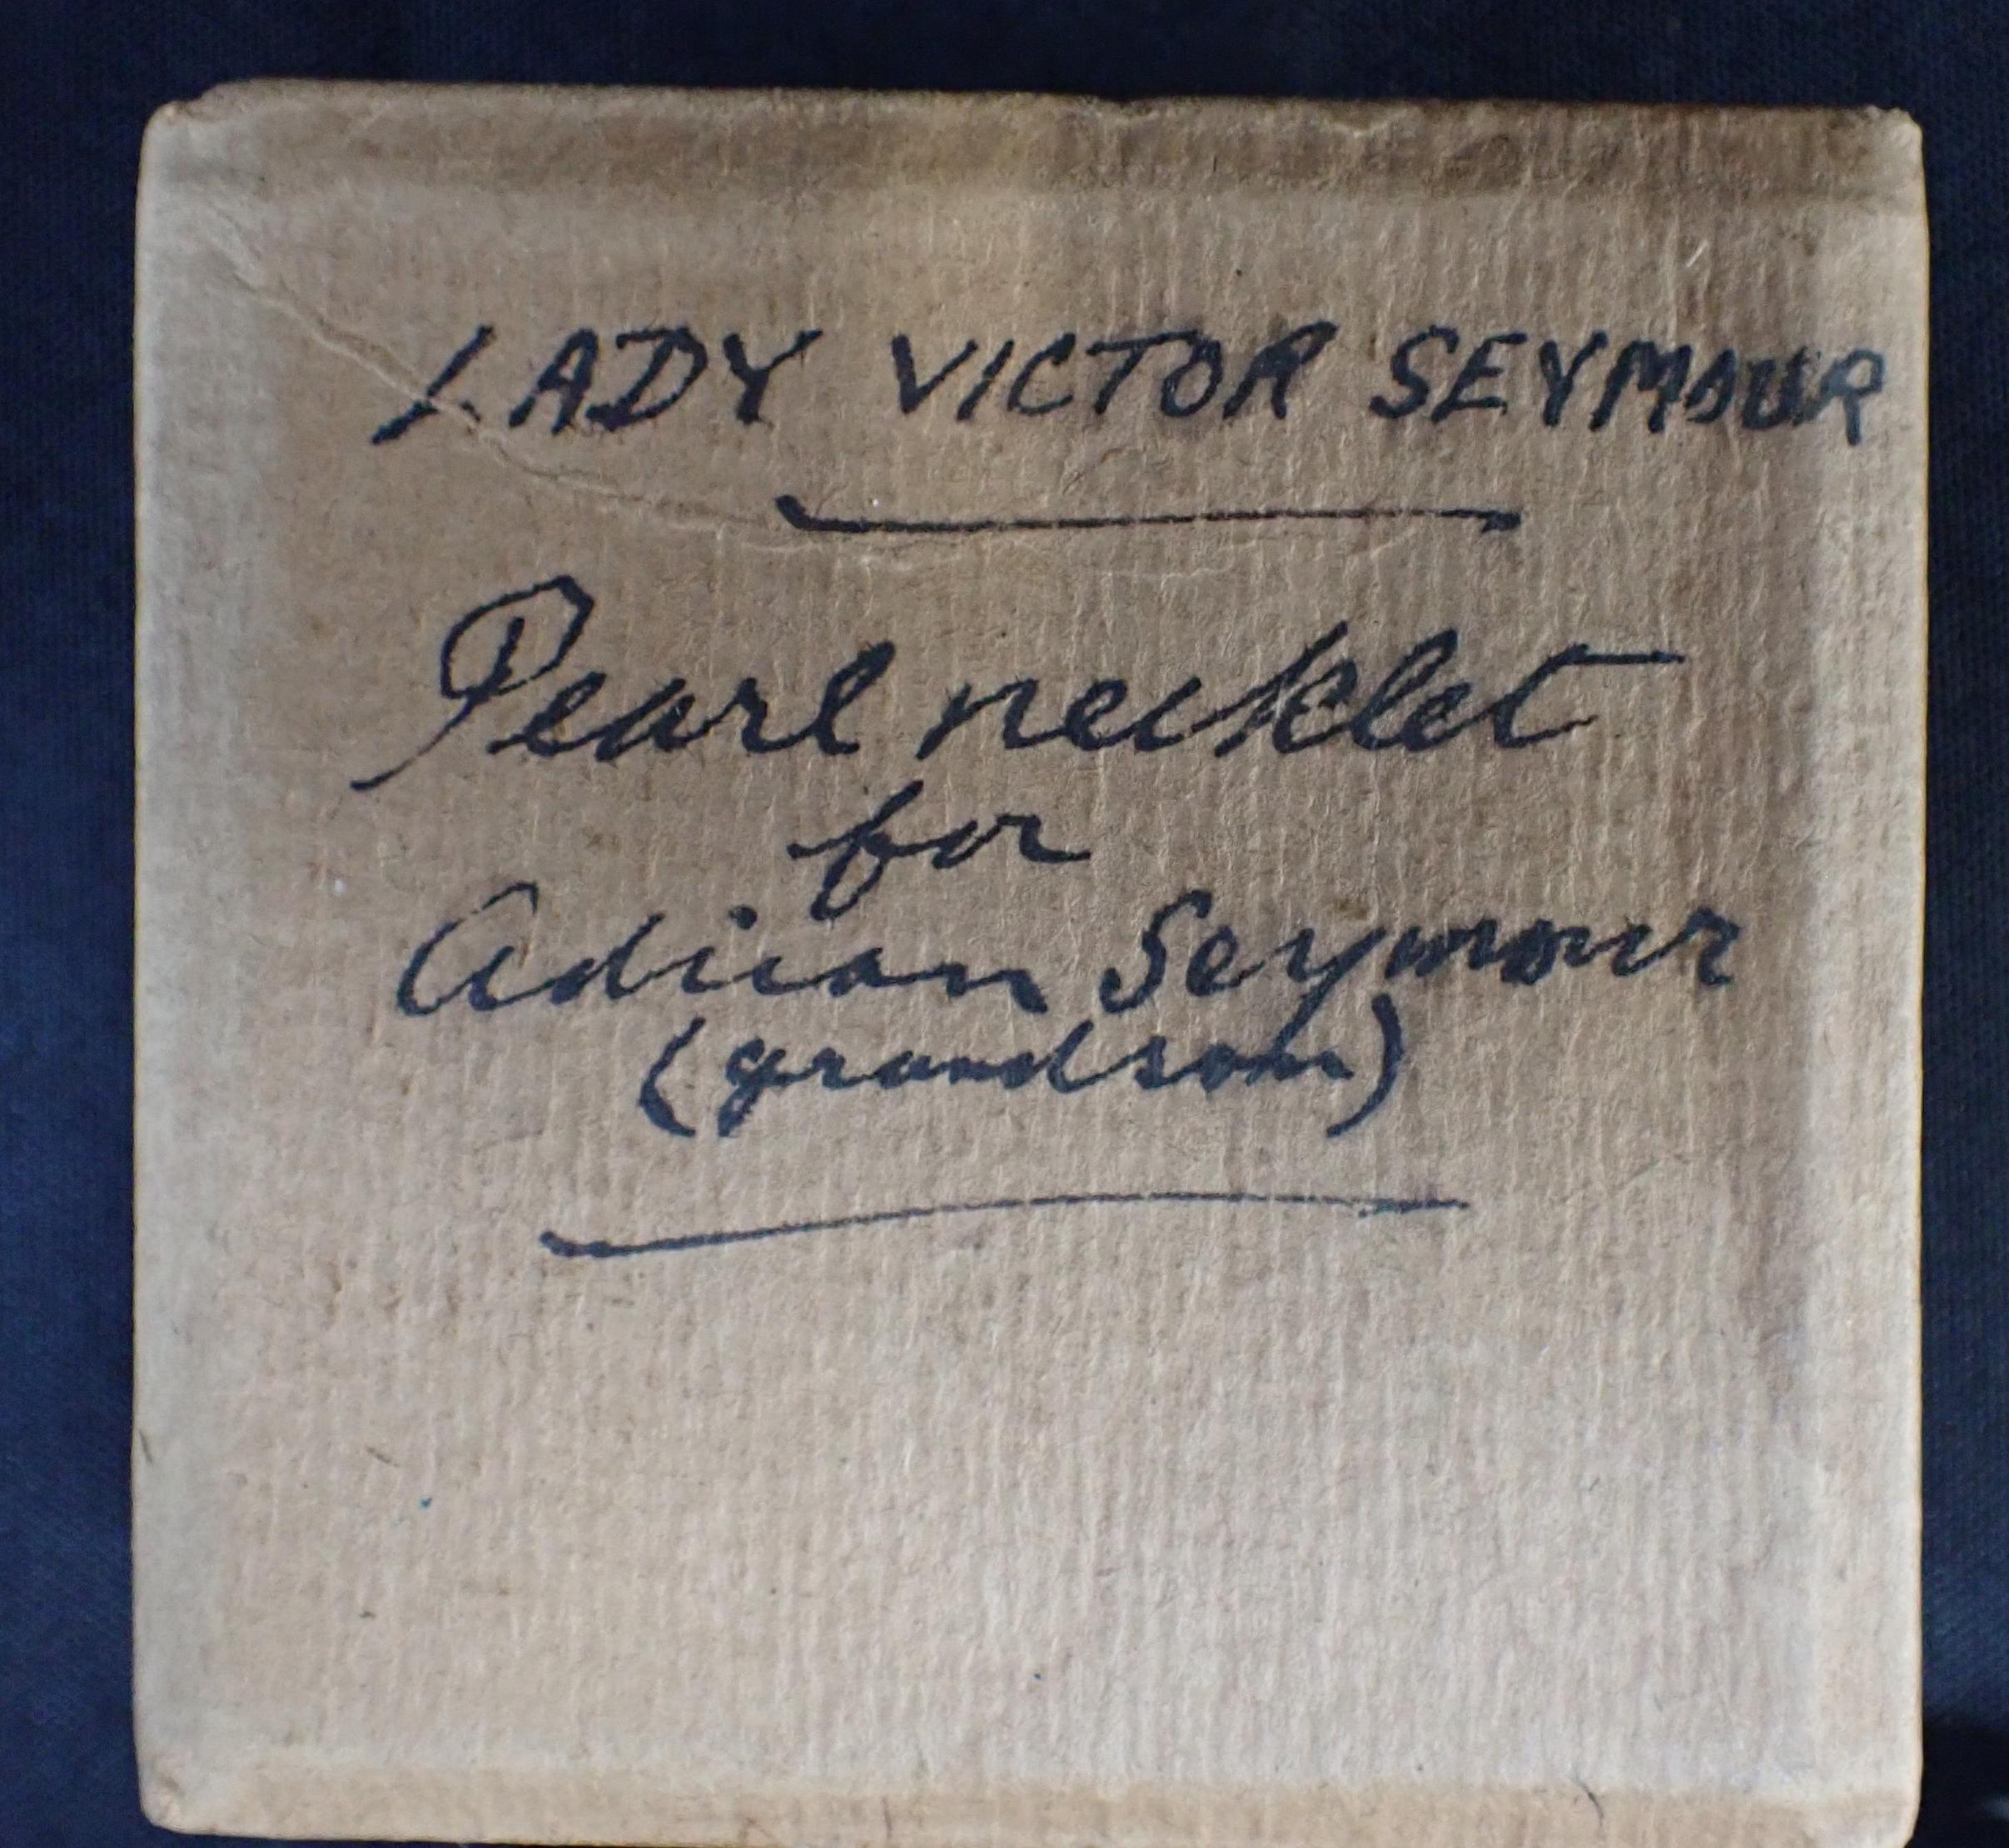 LADY VICTOR SEYMOUR
Pearl necklet
for
Adrian Seymour
(grandson)